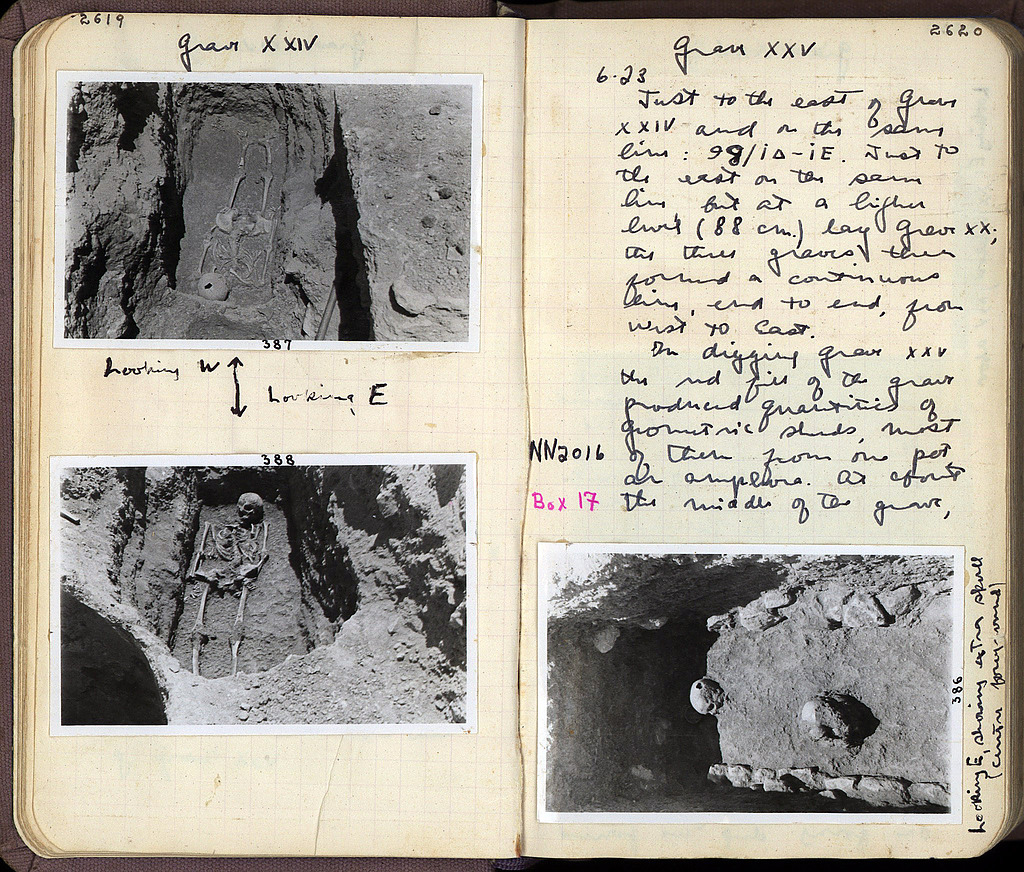 2619
Grave XXIV
387
Looking W
Looking E
388
2620
Grave XXV
6.23
Just to the east of Grave
XXIV and on the same
line: 99/ΙΔ-ΙΕ. Just to
the east on the same
line but at a higher
level (88 cm.) lay Grave XX;
the three graves then
formed a continuous
line, end to end, from
west to East.
In digging grave XXV
the red fill of the grave
produced quantities of
geometric sherds, most
NN2016 of them from one pot
an amphora. At about
Box 17 the middle of the grave,
386
Looking E, showing extra skull
(centre foreground)